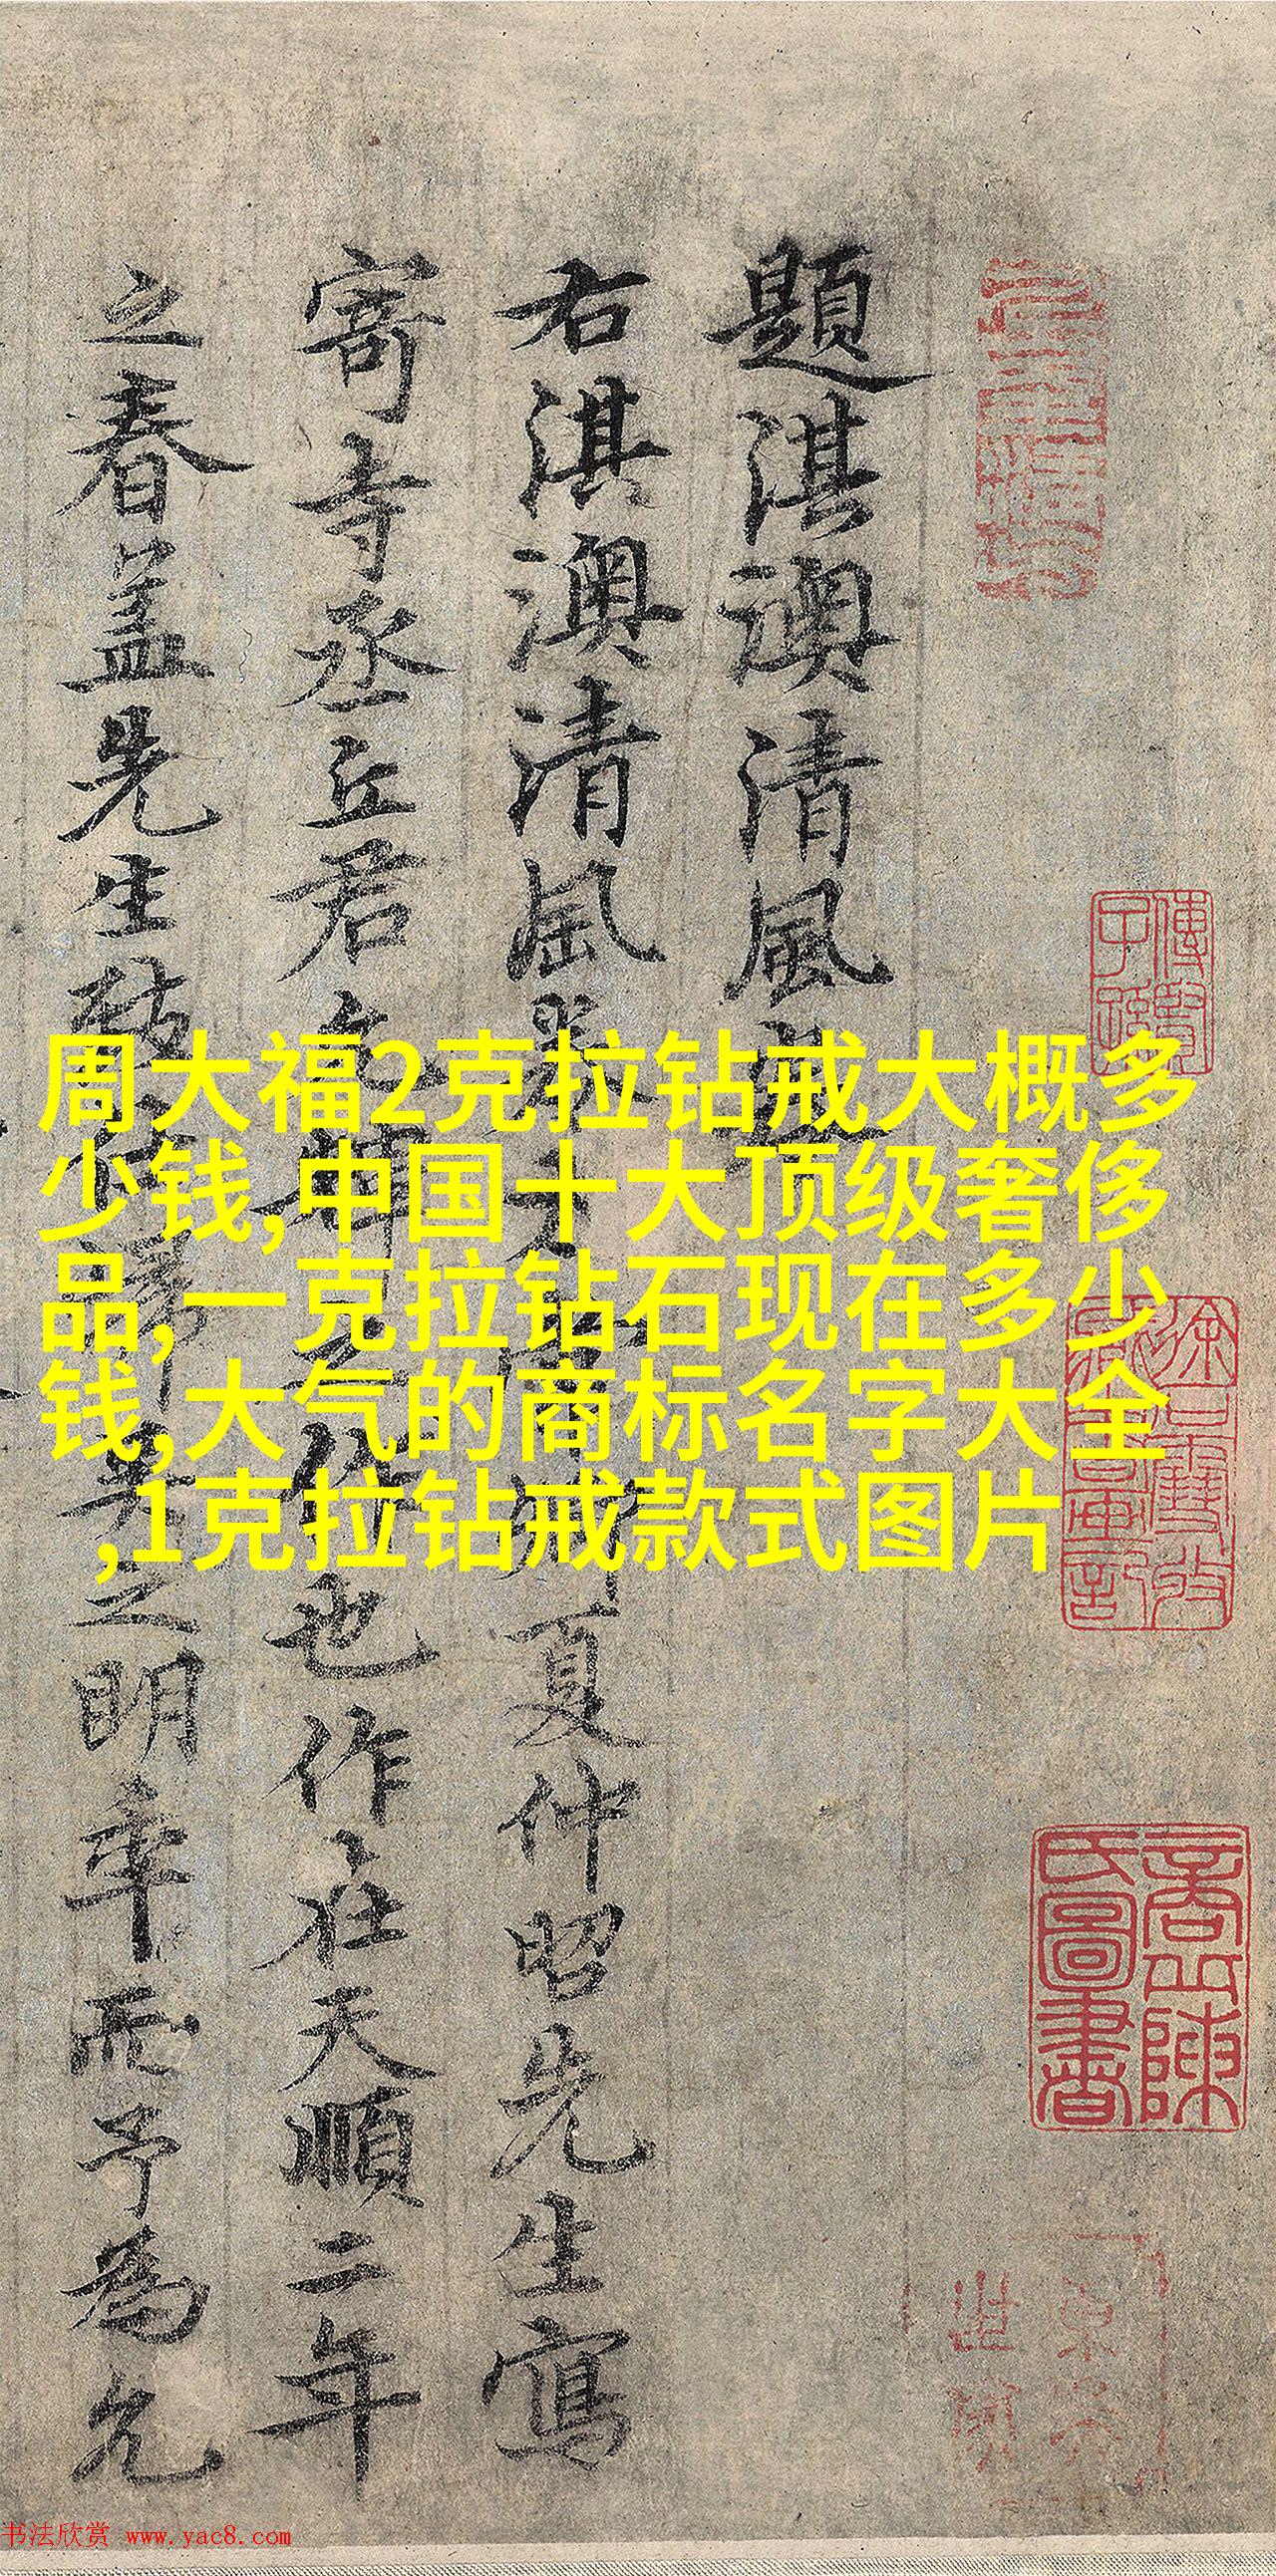 題淇澳清風
右淇澳清風墨 夏仲昭先生寫
寄寺丞丘君 作也作在天順二年
之春蓋先生致仕歸吳之明年而予為允
周大福2克拉钻戒大概多
少钱,中国十大顶级奢侈
品,一克拉钻石现在多少
钱,大气的商标名字大全
,1克拉钻戒款式图片
书法欣赏 www.yac8.com